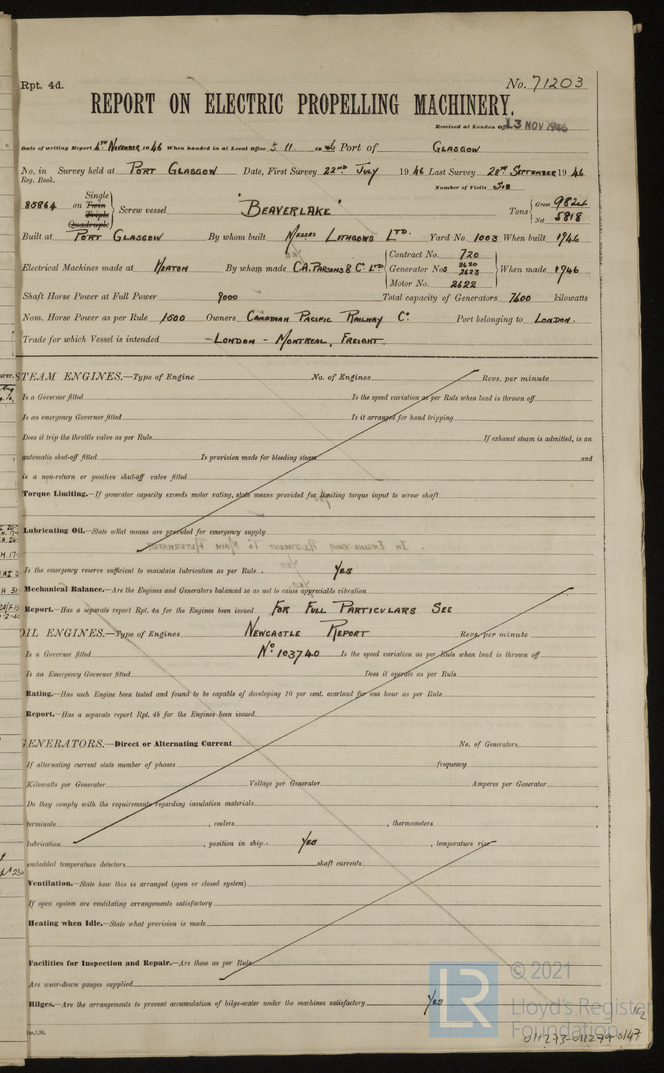 Rpt. 4d. No. 71203
REPORT ON ELECTRIC PROPELLING MACHINERY.
Received at London Office 13 NOV 1946
Date of writing Report 4TH November 1946 When handed in at Local Office 5.11. 1946 Port of GLASGOW
No. in Reg. Book. Survey held at PORT GLASGOW Date, First Survey 22ND JULY 1946 Last Survey 28TH SEPTEMBER 1946
Number of Visits Six
80864 on Single Twin Triple Quadruple Screw vessel "BEAVERLAKE" Tons Gross 9824 Net 5818
Built at PORT GLASGOW By whom built MESSRS LITHGOWS LTD. Yard No. 1003 When built 1946
Electrical Machines made at HEATON By whom made C.A. PARSONS & CO LTD Contract No. 720 Generator Nos 2620 2623 Motor No. 2622 When made 1946
Shaft Horse Power at Full Power 9000 Total capacity of Generators 7400 kilowatts
Nom. Horse Power as per Rule 1500 Owners CANADIAN PACIFIC RAILWAY CO. Port belonging to LONDON.
Trade for which Vessel is intended - LONDON - MONTREAL, FREIGHT.
STEAM ENGINES.—Type of Engine No. of Engines Revs. per minute
Is a Governor fitted Is the speed variation as per Rule when load is thrown off
Is an emergency Governor fitted Is it arranged for hand tripping
Does it trip the throttle valve as per Rule If exhaust steam is admitted, is an
automatic shut-off fitted Is provision made for bleeding steam and
is a non-return or positive shut-off valve fitted
Torque Limiting.—If generator capacity exceeds motor rating, state means provided for limiting torque input to screw shaft
Lubricating Oil.—State what means are provided for emergency supply
Is the emergency reserve sufficient to maintain lubrication as per Rule YES
Mechanical Balance.—Are the Engines and Generators balanced so as not to cause appreciable vibration
Report.—Has a separate report Rpt. 4a for the Engines been issued FOR FULL PARTICULARS SEE
OIL ENGINES.—Type of Engines NEWCASTLE REPORT Revs. per minute
Is a Governor fitted No 103740 Is the speed variation as per Rule when load is thrown off
Is an Emergency Governor fitted Does it operate as per Rule
Rating.—Has each Engine been tested and found to be capable of developing 10 per cent. overload for one hour as per Rule
Report.—Has a separate report Rpt. 4b for the Engines been issued
GENERATORS.—Direct or Alternating Current No. of Generators
If alternating current state number of phases frequency
Kilowatts per Generator Voltage per Generator Amperes per Generator
Do they comply with the requirements regarding insulation materials
terminals , coolers , thermometers ,
lubrication , position in ship YES , temperature rise
embedded temperature detectors shaft currents
Ventilation.—State how this is arranged (open or closed system)
If open system are ventilating arrangements satisfactory
Heating when Idle.—State what provision is made
Facilities for Inspection and Repair.—Are these as per Rule
Are wear-down gauges supplied
Bilges.—Are the arrangements to prevent accumulation of bilge-water under the machines satisfactory YES
LR
© 2021
Lloyd's Register
Foundation
011273-011279-0147